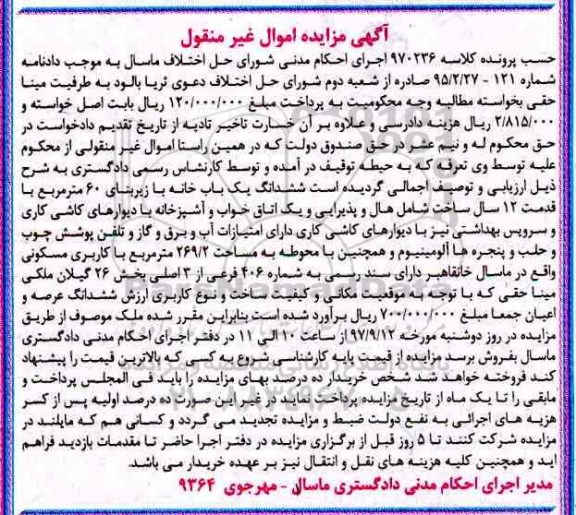 آگهی مزایده اموال غیر منقول
حسب پرونده کلاسه ۹۷۰۲۳۶ اجرای احکام مدنی شورای حل اختلاف ماسال به موجب دادنامه
شماره ۱۲۱ - ۹۵/۲/۲۷ صادره از شعبه دوم شورای حل اختلاف دعوی ثریا بالود به طرفیت مینا
حقی بخواسته مطالبه وجه محکومیت به پرداخت مبلغ ۱۲۰/۰۰۰/۰۰۰ ریال بابت اصل خواسته و
۲/۸۱۵/۰۰۰ ریال هزینه دادرسی و علاوه بر آن خسارت تاخیر تادیه از تاریخ تقدیم دادخواست در
حق محکوم له و نیم عشر در حق صندوق دولت که در همین راستا اموال غیر منقولی از محکوم
علیه توسط وی تعرفه که به حیطه توقیف در آمده و توسط کارشناس رسمی دادگستری به شرح
ذیل ارزیابی و توصیف اجمالی گردیده است ششدانگ یک باب خانه با زیربنای ۶۰ مترمربع با
قدمت ۱۲ سال ساخت شامل هال و پذیرایی و یک اتاق خواب و آشپزخانه با دیوارهای کاشی کاری
و سرویس بهداشتی نیز با دیوارهای کاشی کاری دارای امتیازات آب و برق و گاز و تلفن پوشش چوب
و حلب و پنجره ها آلومینیوم و همچنین با محوطه به مساحت ۲۶۹/۲ مترمربع با کاربری مسکونی
واقع در ماسال خانقاهبر دارای سند رسمی به شماره ۴۰۶ فرعی از ۳ اصلی بخش ۲۶ گیلان ملکی
مینا حقی که با توجه به موقعیت مکانی و کیفیت ساخت و نوع کاربری ارزش ششدانگ عرصه و
اعیان جمعا مبلغ ۷۰۰/۰۰۰/۰۰۰ ریال برآورد شده است بنابراین مقرر شده ملک موصوف از طریق
مزایده در روز دوشنبه مورخه ۹۷/۹/۱۲ از ساعت ۱۰ الی ۱۱ در دفتر اجرای احکام مدنی دادگستری
ماسال بفروش برسد مزایده از قیمت پایه کارشناسی شروع به کسی که بالاترین قیمت را پیشنهاد
کند فروخته خواهد شد شخص خریدار ده درصد بهای مزایده را باید فی المجلس پرداخت و
مابقی را تا یک ماه از تاریخ مزایده پرداخت نماید در غیر این صورت ده درصد اولیه پس از کسر
هزینه های اجرائی به نفع دولت ضبط و مزایده تجدید می گردد و کسانی هم که مایلند در
مزایده شرکت کنند تا ۵ روز قبل از برگزاری مزایده در دفتر اجرا حاضر تا مقدمات بازدید فراهم
اید و همچنین کلیه هزینه های نقل و انتقال نیز بر عهده خریدار می باشد.
مدیر اجرای احکام مدنی دادگستری ماسال - مهرجوی ۹۳۶۴